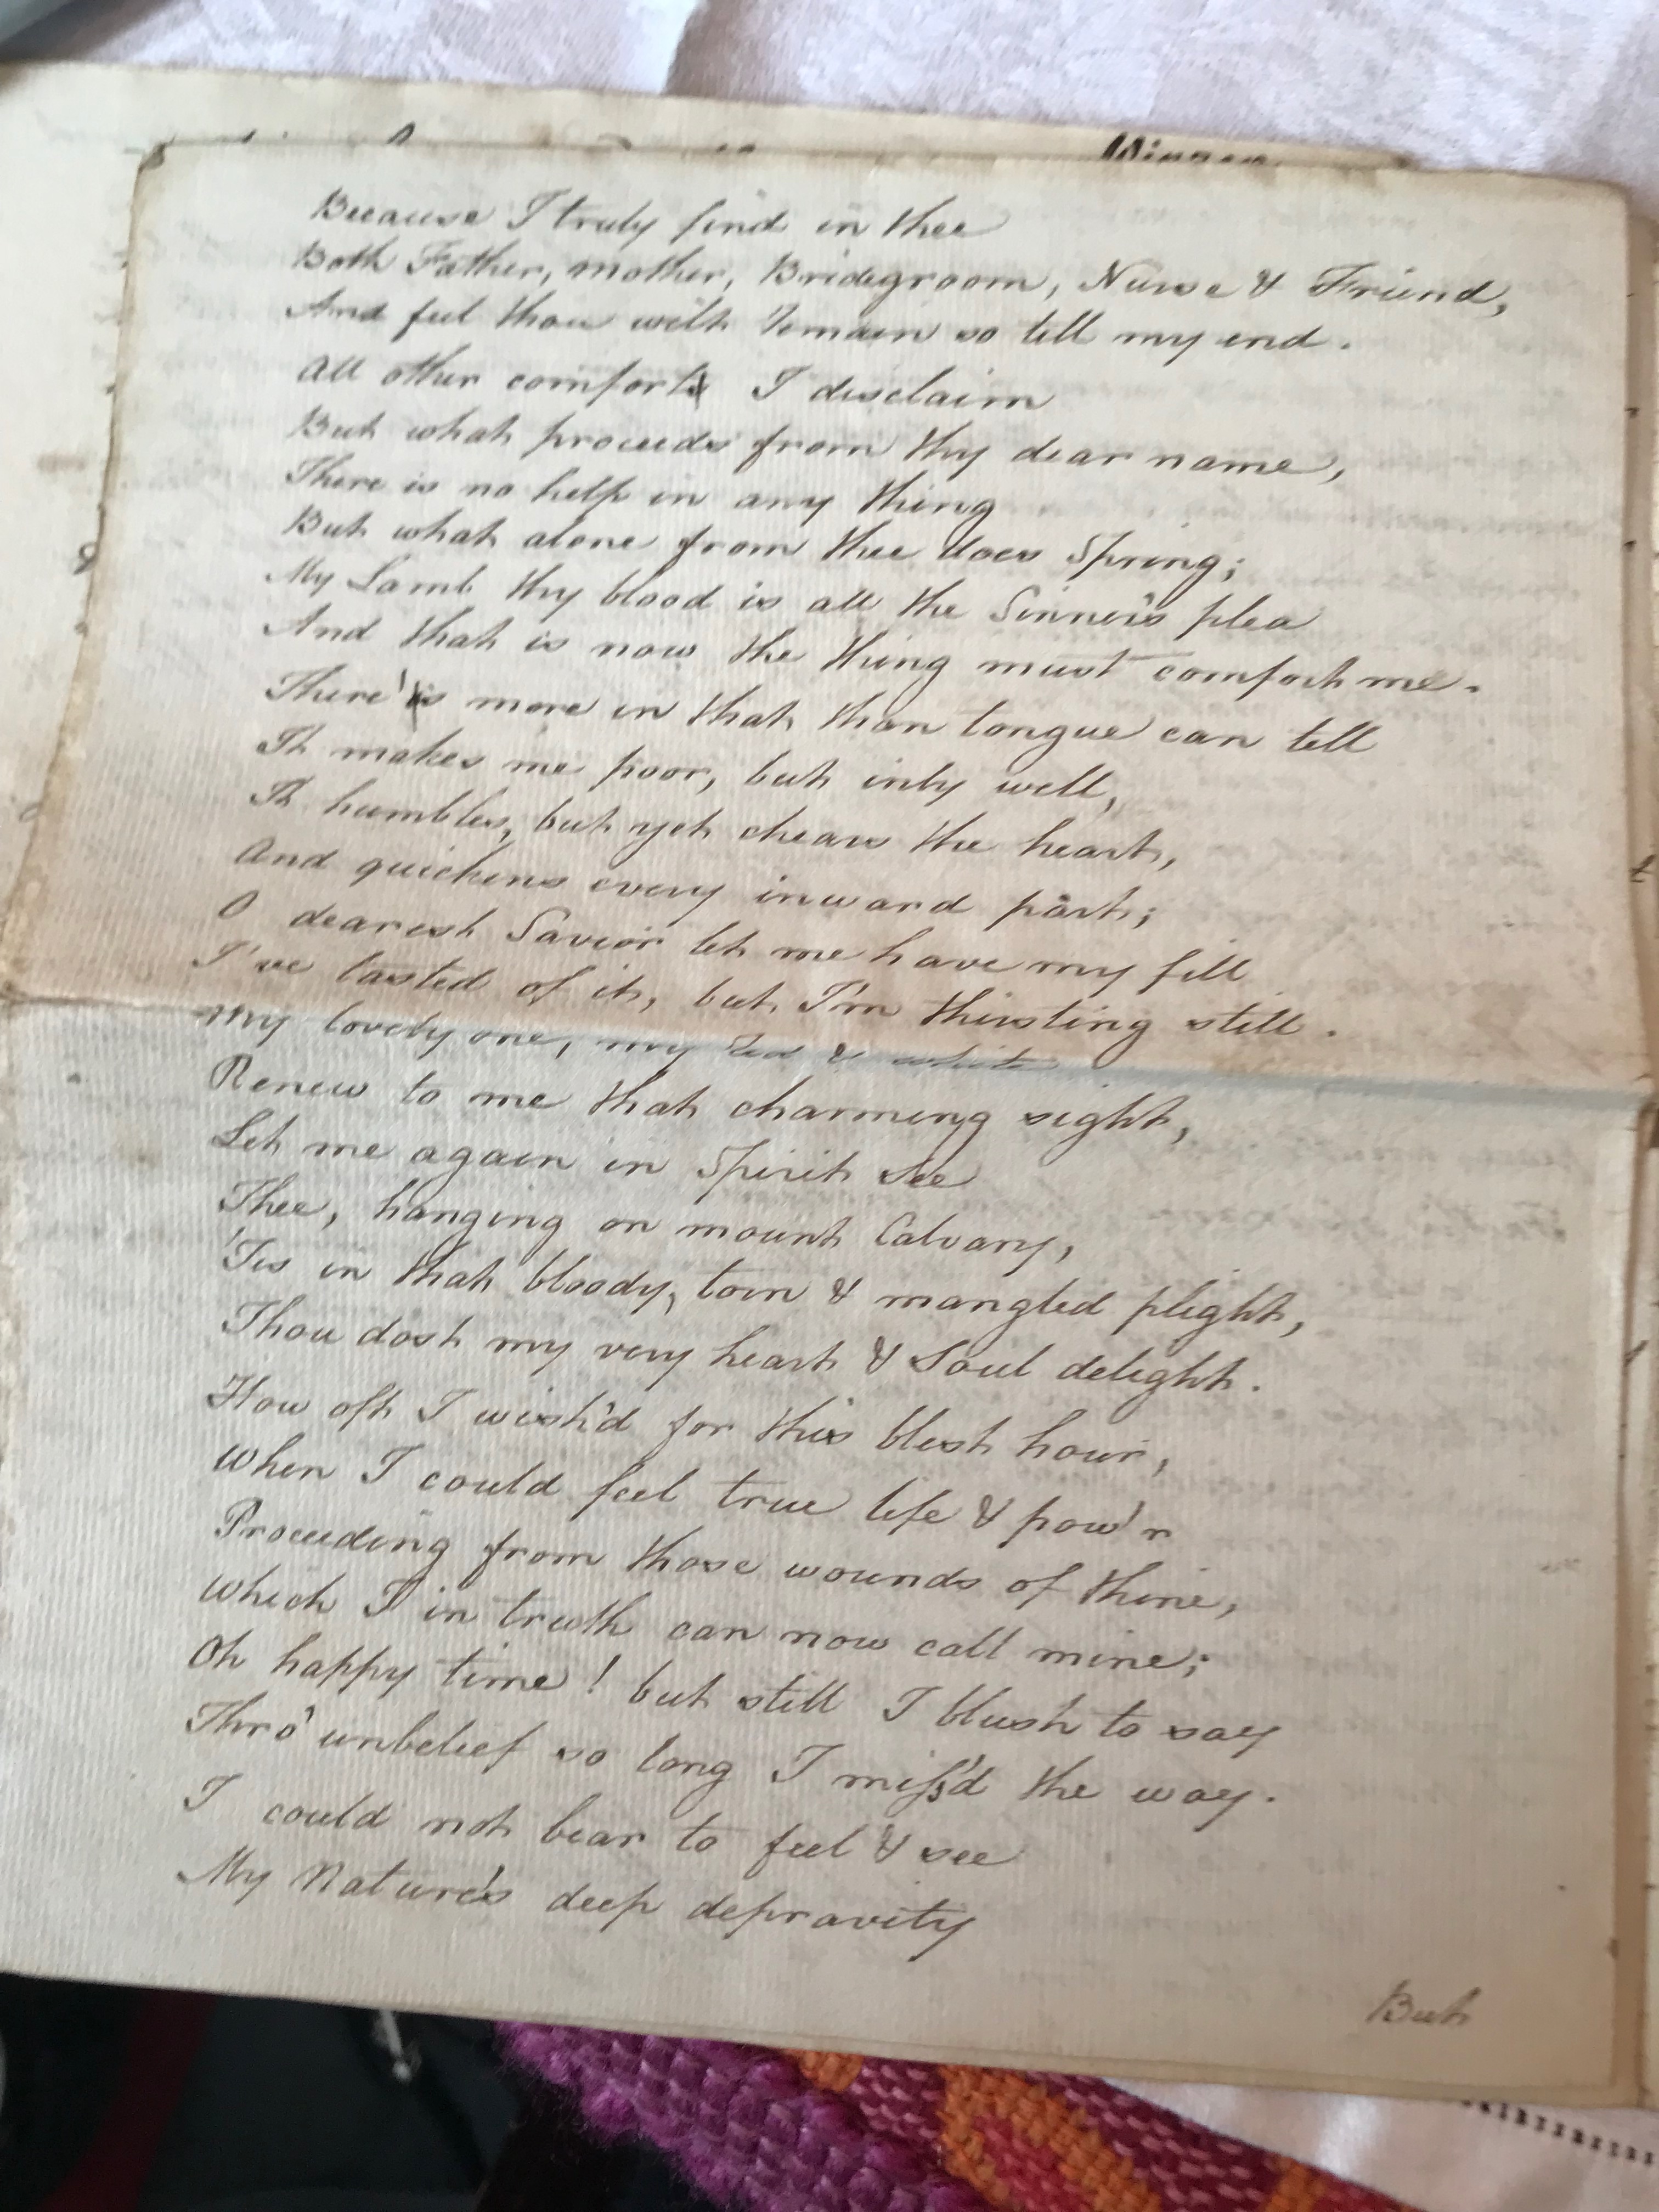 Because I truly find in thee
Both Father, mother, Bridegroom, Nurse & Friend,
And feel thou wilt remain so till my end.
All other comforts I disclaim
But what proceeds from thy dear name,
There is no help in any thing
But what alone from thee does Spring;
My Lamb thy blood is all the Sinner's plea
And that is now the thing must comfort me.
There's more in that than tongue can tell
It makes me poor, but inly well,
It humbles, but yet chears the heart,
And quickens every inward part;
O dearest Savior let me have my fill
I've tasted of it, but I'm thirsting still.
My lovely one, my Red & white
Renew to me that charming sight,
Let me again in Spirit see
Thee, hanging on mount Calvary,
'Tis in that bloody, torn & mangled plight,
Thou dost my very heart & Soul delight.
How oft I wish'd for this blest hour,
when I could feel true life & pow'r
Proceeding from those wounds of thine,
which I in truth can now call mine;
Oh happy time! but still I blush to say
Thro' unbelief so long I miss'd the way.
I could not bear to feel & see
My Nature's deep depravity
But